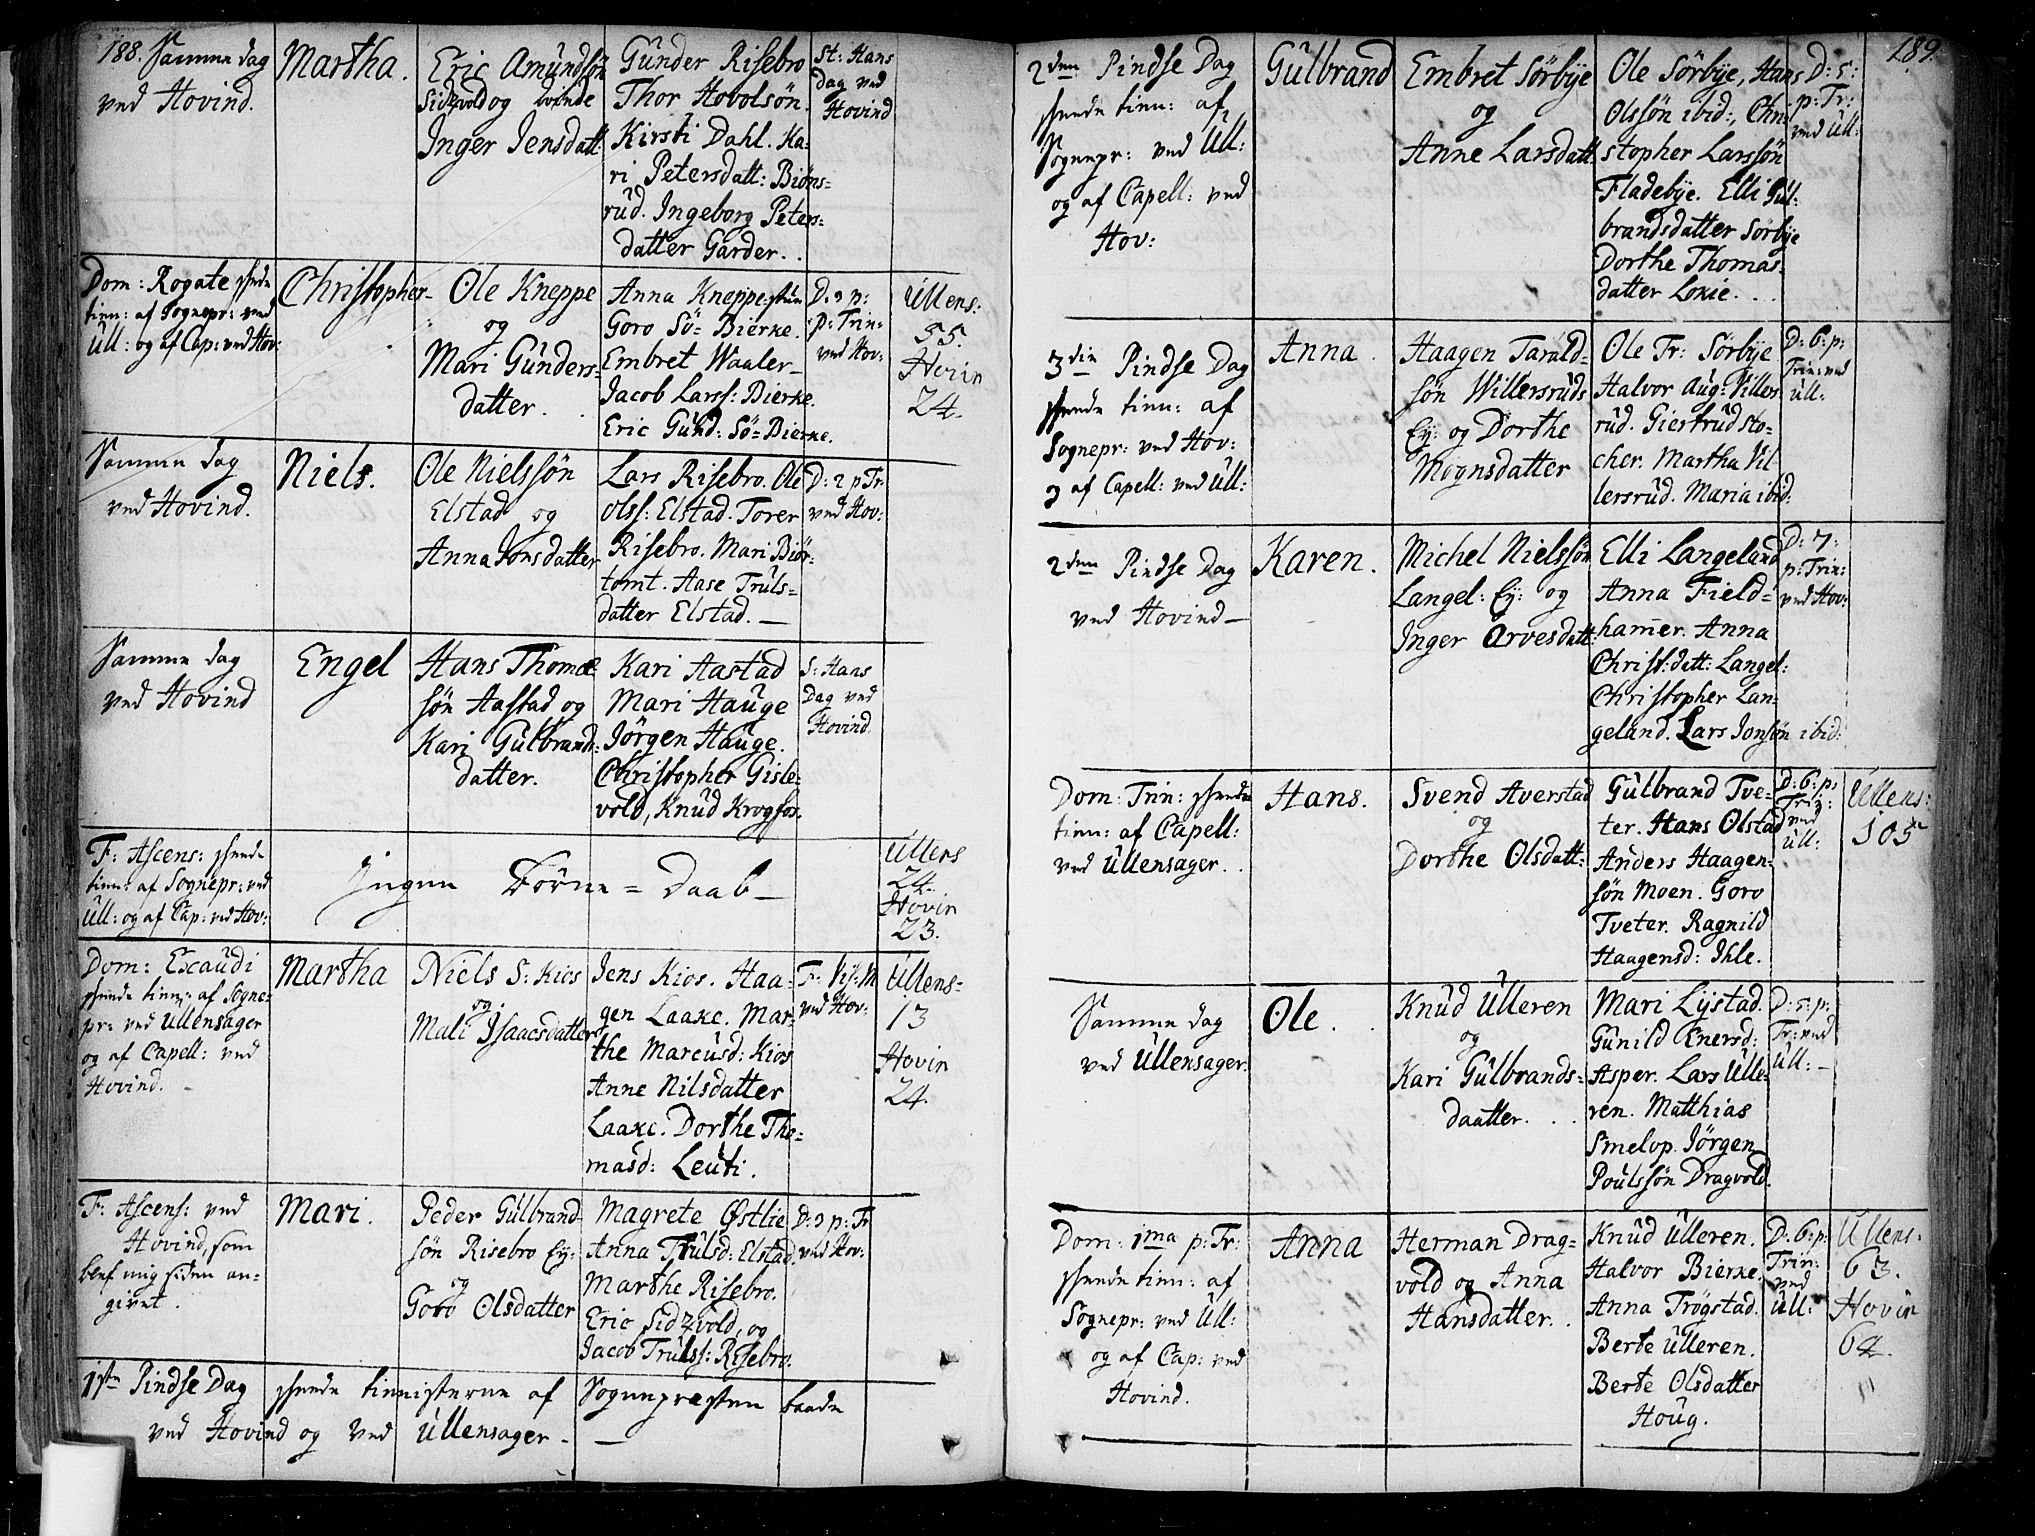 188. Samme dag
ved Hovind.
Martha.
Eric Amundsøn
Sidzvold og Qvinde
Inger Jensdatt
Gunder Risebro
Thor Hovolsön.
Kirsti Dahl. Ka-
ri Petersdatt: Biöns=
rud. Ingeborg Peters=
datter Garder.
St: Hans
Dag ved
Hovind
Dom: Rogate skeede
tien: af Sognepr: ved
Ull: og af Cap: ved Hov:
Christopher
Ole Kneppe
og
Mari Gunders=
datter.
Anna Kneppe
Goro Sö= Bierke.
Embret Waaler
Jacob Larss: Bierke.
Eric Gund: Sö= Bierke.
D: 2 p:
P: Trin:
ved Hov:
Ullens:
55.
Hovin
24.
Samme dag
ved Hovind.
Niels.
Ole Nielssön
Elstad og
Anna Jonsdatter
Lars Risebro. Ole
Olss: Elstad. Torer
Risebro. Mari Biör=
tomt. Aase Truls=
datter Elstad.
D: 2 p Tr
ved Hov:
Samme dag
ved Hovind
Engel
Hans Thomæ
sön Aastad og
Kari Gulbrands:
datter.
Kari Aastad
Mari Hauge
Jörgen Hauge.
Christopher Gisle=
vold, Knud Krogfos.
S: Hans
Dag ved
Hovind.
F: Ascens: skeede
tien: af Sognepr: ved
Ull: og af Cap: ved Hov:
Ingen Börne = Daab
Ullens
24.
Hovin
23.
Dom: Exaudi
skeede tien: af Sogne=
pr: ved Ullensager
og af Capell: ved
Hovind.
Martha
Niels S: Kios
og
Mali Isaacsdatter
Jens Kios. Haa=
gen Laake. Mar=
the Marcusd: Kios
Anne Nilsdatter
Laake. Dorthe Tho=
masd: Leuti.
F: Vis: M
ved Hov:
Ullens=
13
Hovin
24.
F: Ascens: ved
Hovind, som
blef mig siden an=
givet.
Mari.
Peder Gulbrand
sön Risebro Ey:
og
Goro Olsdatter
Magrete Østlie
Anna Trulsd: Elstad.
Marthe Risebro.
Eric Sidzvold, og
Jacob Trulss: Risebro.
D: 2 p: Tr
ved Hov:
1ste Pindse Dag skeede tienisterne af Sognepræsten baade
ved Hovind og ved Ullensager
189.
2den Pindse Dag
skeede tien: af
Sognepr: ved Ull:
og af Capell: ved
Hov:
Gulbrand
Embret Sörbye
og
Anne Larsdatt
Ole Sörbye, Hans
Olssön ibid:, Chri=
stopher Larssön
Fladebye. Elli Gul=
brandsdatter Sörbye
Dorthe Thomas=
datter Loxie.
D: 5:
p: Tr:
ved Ull:
3die Pindse Dag
skeede tien: af
Sognepr: ved Hov:
og af Capell: ved Ull:
Anna.
Haagen Tarald=
sön Willersruds
Ey: og Dorthe
Mognsdatter
Ole Tr: Sörbye
Halvor Aug: Viller
rud. Giertrud Sto=
cher. Martha Vil
lersrud. Maria ibid:
D: 6: p:
Trin: ved
Ull:
2den Pindse Dag
ved Hovind
Karen.
Michel Nielssön
Langel: Ey: og
Inger Arvesdatt:
Elli Langeland
Anna Field=
hamer. Anna
Christ:datt: Langel:
Christopher Lan=
geland. Lars Jonsön ibid:
D: 7:
p: Trin:
ved Hov:
Dom: Trin: skeede
tien: af Capell:
ved Ullensager.
Hans.
Svend Averstad
og
Dorthe Olsdatt:
Gulbrand Tve=
ter. Hans Olstad
Anders Haagen=
sön Moen. Goro
Tveter. Ragnild
Haagensd: Ihle.
D: 6: p:
Trin:
ved
Ull:
Ullens:
105
Samme dag
ved Ullensager.
Ole.
Knud Ulleren
og
Kari Gulbrands=
daatter.
Mari Lystad.
Gunild Enersd:
Asper. Lars Ulle=
ren. Matthias
Smelop. Jörgen
Poulssön Dragvold.
D: 5: p:
Tr: ved
Ull:
Dom: 1ma p: Tr:
skeede tien: af
Sognepr: ved Ull:
og af Cap: ved
Hovind.
Anna
Herman Drag=
vold og Anna
Hansdatter.
Knud Ulleren.
Halvor Bierke.
Anna Trögstad.
Berte Ulleren.
Berte Olsdatter
Houg.
D: 6: p:
Trin:
ved
Ull:
Ullens:
63.
Hovin
64.